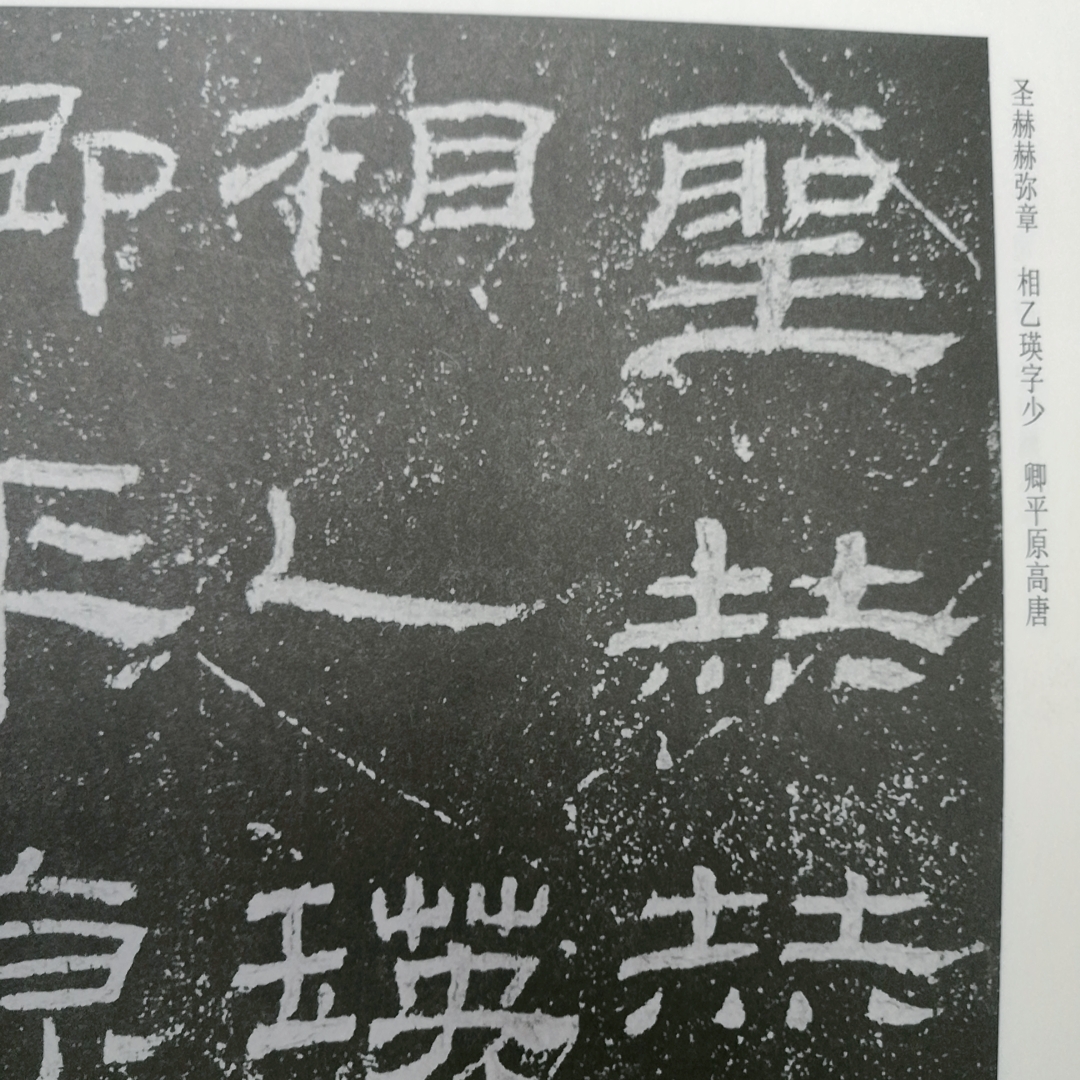 圣赫赫弥章　相乙瑛字少　卿平原高唐
聖赫赫
相乙瑛
卿平原